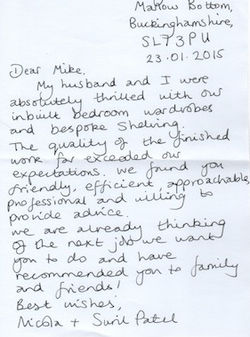 Marlow Bottom,
Buckinghamshire,
SL7 3PU
23.01.2015
Dear Mike,
My husband and I were
absolutely thrilled with our
inbuilt bedroom wardrobes
and bespoke shelving.
The quality of the finished
work far exceeded our
expectations. We found you
friendly, efficient, approachable,
professional and willing to
provide advice.
We are already thinking
of the next job we want
you to do and have
recommended you to family
and friends!
Best wishes,
Nicola + Sunil Patel